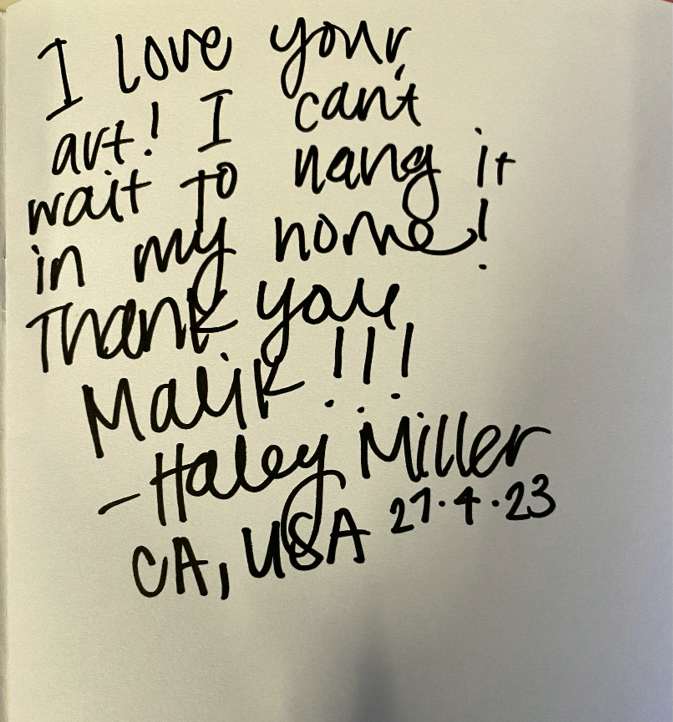 I love your
art! I can't
wait to hang it
in my home!
Thank you,
Malik!!!
- Haley Miller
CA, USA 27.4.23